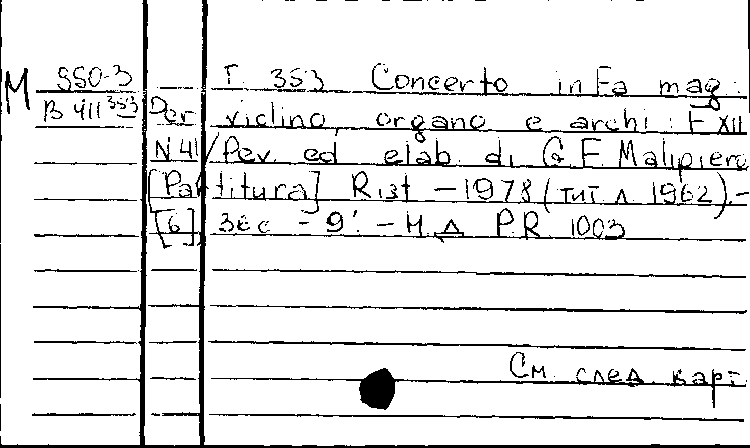 М 550-3 Т. 353 Concerto in Fa mag.
В 411 353 per violino, organo e archi: F XII
N 41 / Rev. ed elab. di G. F. Malipiero
[Partitura] Rist. – 1978 (тит. л. 1962). –
[6], 36 с – 9'. – Н.Д. P.R. 1003
См. след. карт.